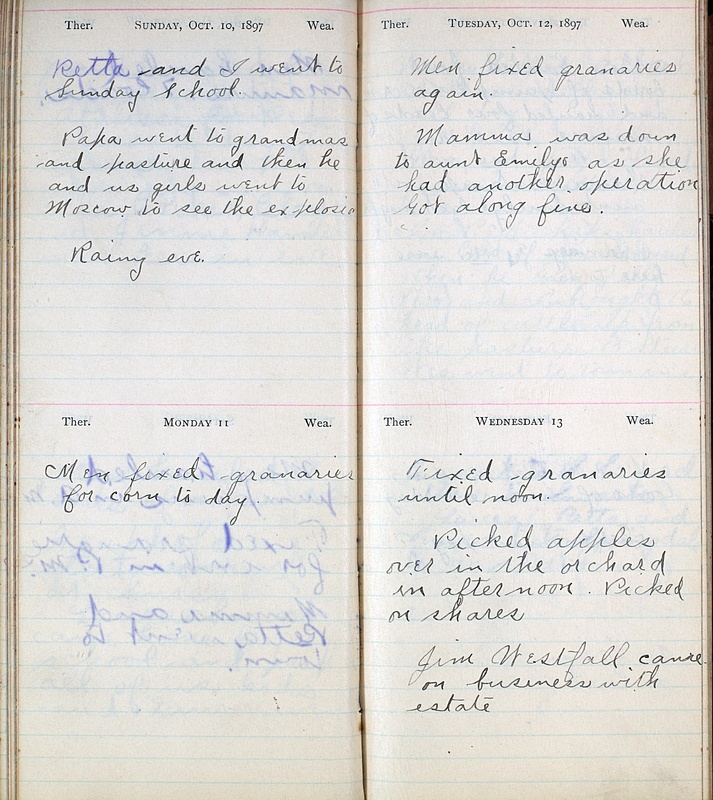 Ther. SUNDAY, OCT. 10, 1897 Wea.
Retta and I went to
Sunday School.
Papa went to grandmas
and pasture and then he
and us girls went to
Moscow to see the explosio
Rainy eve.
Ther. MONDAY 11 Wea.
Men fixed granaries
for corn to day.
Ther. TUESDAY, OCT. 12, 1897 Wea.
Men fixed granaries
again.
Mamma was down
to aunt Emilys as she
had another operation
Got along fine.
Ther. WEDNESDAY 13 Wea.
Fixed granaries
until noon.
Picked apples
over in the orchard
in afternoon. Picked
on shares
Jim Westfall came
on business with
estate